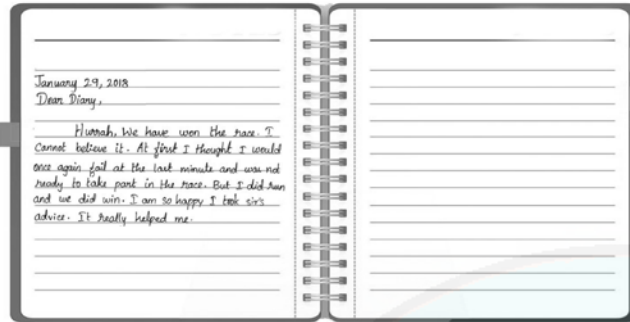 January 29, 2018
Dear Diary,
Hurrah, We have won the race. I
cannot believe it. At first I thought I would
once again fail at the last minute and was not
ready to take part in the race. But I did run
and we did win. I am so happy I took sir's
advice. It really helped me.